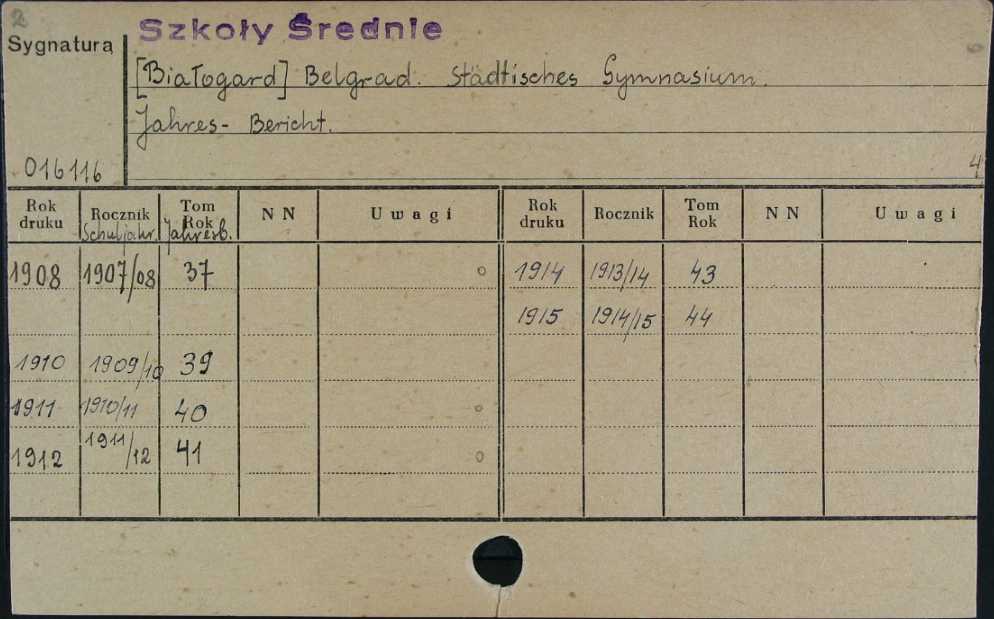 2
Szkoły Średnie
Sygnatura
[Białogard] Belgrad. Städtisches Gymnasium.
Jahres- Bericht.
016116
4
Rok druku Rocznik Schuljahr. Tom Rok Jahresb. NN Uwagi Rok druku Rocznik Tom Rok NN Uwagi
1908 1907/08 37 o 1914 1913/14 43
1915 1914/15 44
1910 1909/10 39
1911 1910/11 40 o
1912 1911/12 41 o